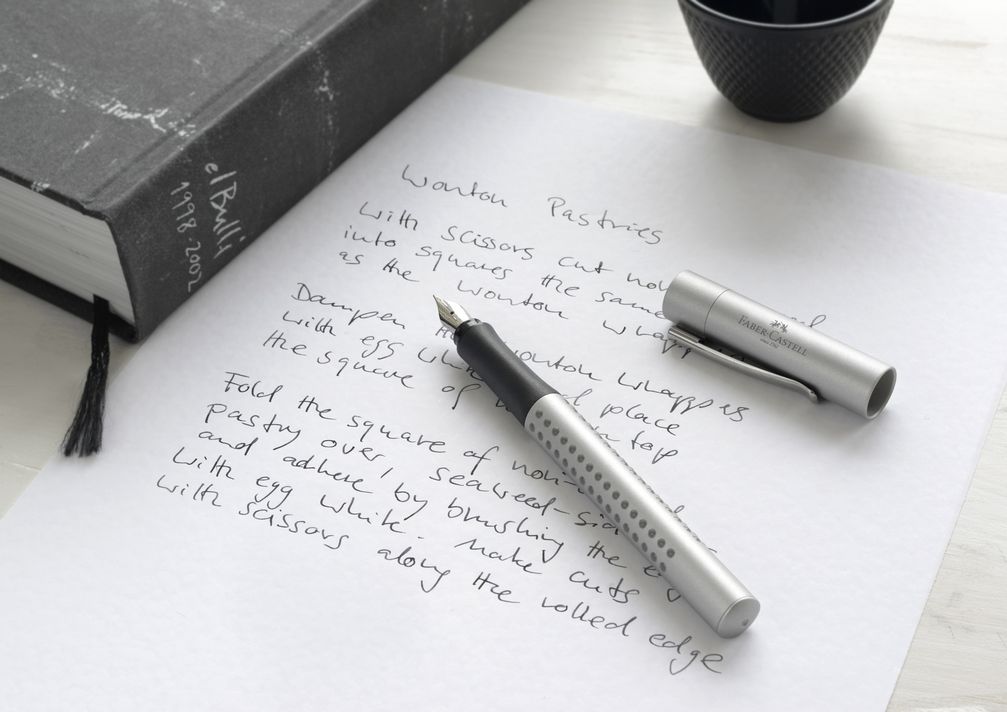 elBulli
1998-2002
Wonton Pastries
with scissors cut
into squares the same
as the wonton whapp
Dampen wonton whappers
with egg place
the square of
Fold the square of
pastry over, seaweed-
and adhere by brushing the
with egg white. Make cuts
with scissors along the rolled edge
FABER-CASTELL
since 1761